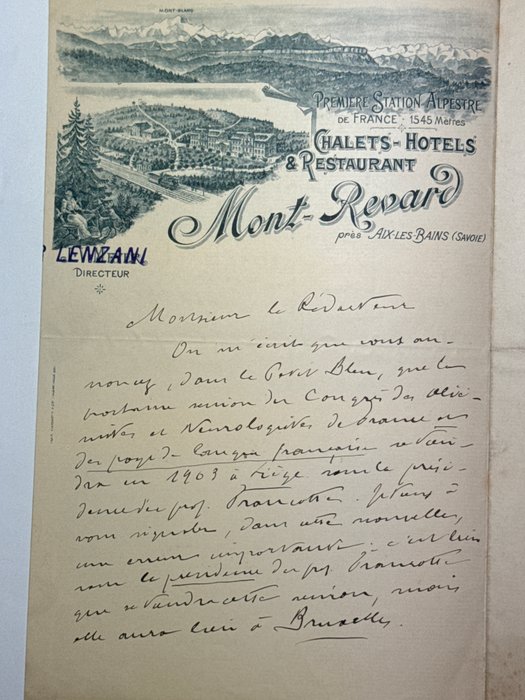 MONT-BLANC
PREMIÈRE STATION ALPESTRE
DE FRANCE - 1545 MÈTRES
CHALETS-HOTELS
& RESTAURANT
Mont-Revard
près AIX-LES-BAINS (SAVOIE)
LENZANI
DIRECTEUR
Monsieur le Rédacteur
On m'écrit que vous an-
noncez, dans le Petit Bleu, que la
prochaine réunion du Congrès des Alié-
nistes et Neurologistes de France et
des pays de langue française se tien-
dra en 1903 à Liège sous la prési-
dence du prof. Francotte. Je tiens à
vous signaler, dans cette nouvelle,
une erreur importante. C'est bien
sous la présidence du pr. Francotte
que se tiendra cette réunion, mais
elle aura lieu à Bruxelles.